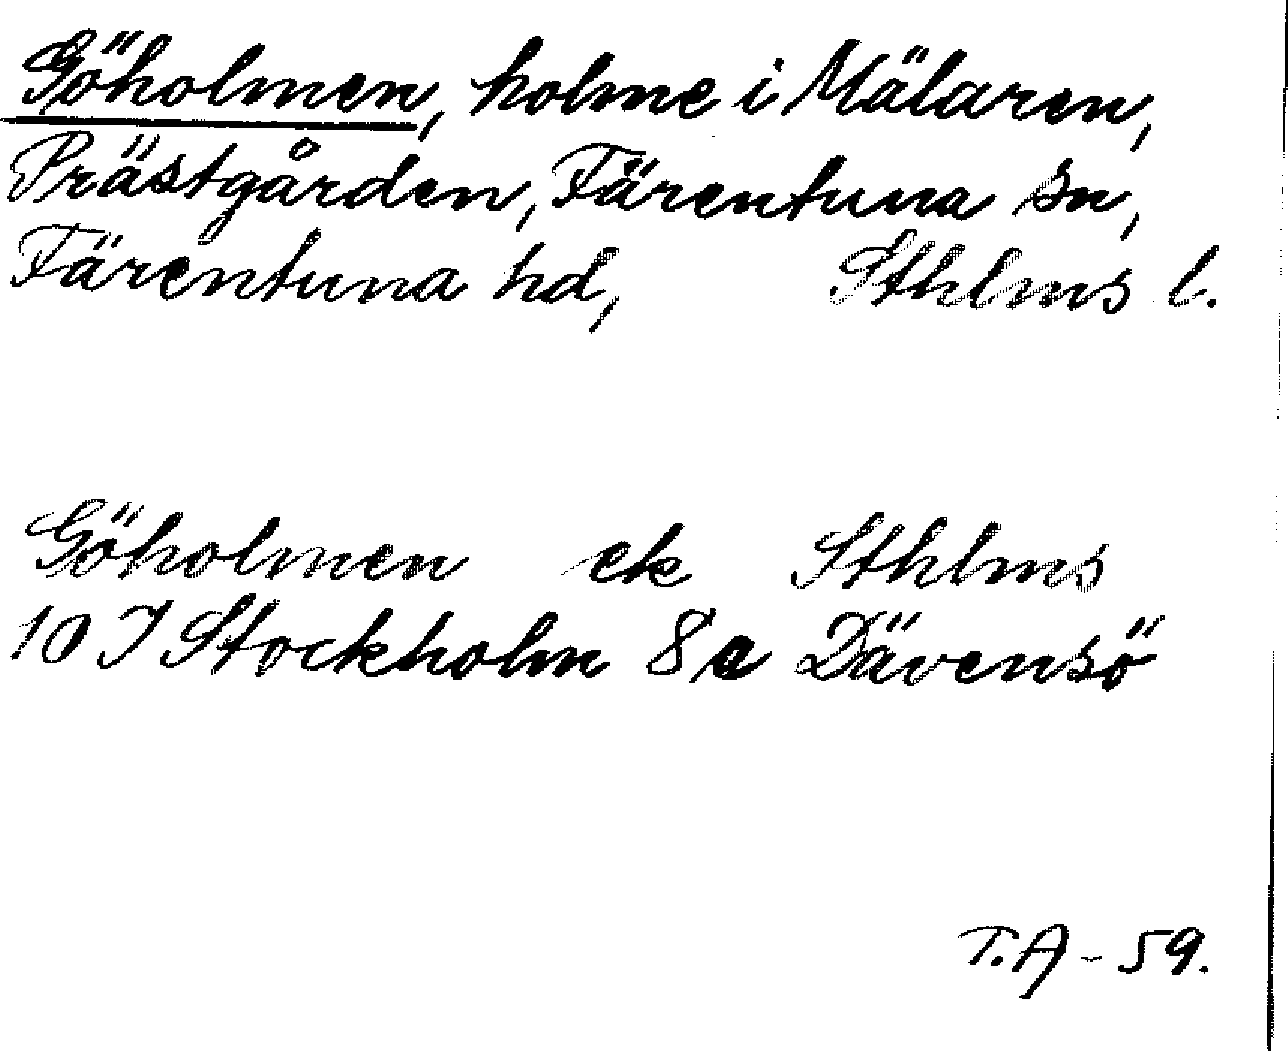 Göholmen, holme i Mälaren,
Prästgården, Färentuna sn,
Färentuna hd, Sthlms l.
Göholmen ek Sthlms
10 I Stockholm 8 e Dävensö
T.A - 59.